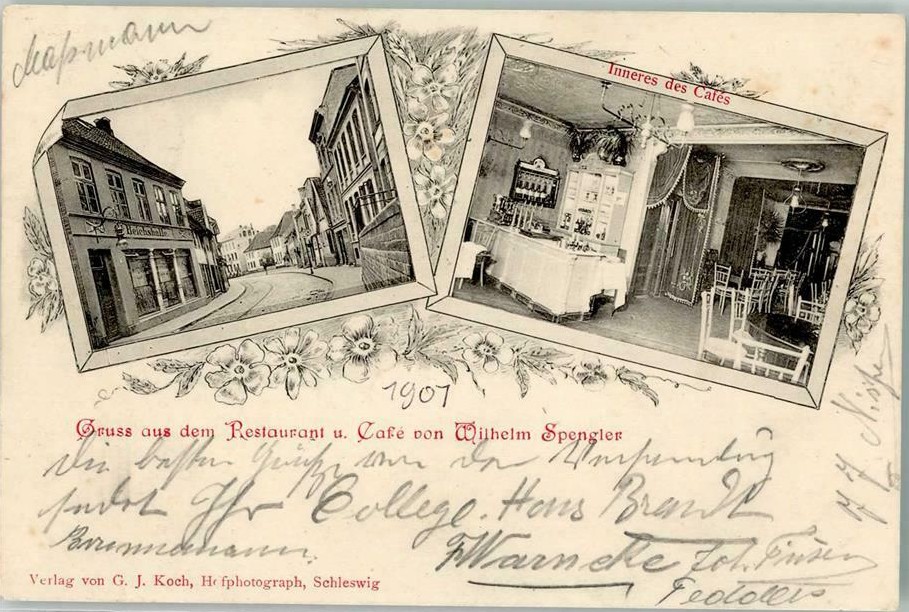 Maßmann
Inneres des Cafés
Reichshalle
1901
Gruss aus dem Restaurant u. Café von Wilhelm Spengler
Die besten Grüße von der
sendet Ihr College. Hans Brandt
Brunnemann.
Warncke Joh.
Fedders.
Verlag von G. J. Koch, Hofphotograph, Schleswig